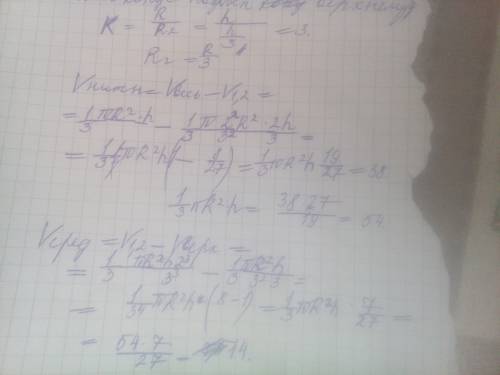 верхнему
K = R/R₂ = h/(h/3) = 3.
R₂ = R/3
Vнижн = Vбол - V1,2 =
= 1/3 πR²·h - 1/3 π 2²/3² R²·2h/3 =
= 1/3 πR²h (1 - 8/27) = 1/3 πR²h 19/27 = 38
1/3 πR²h = 38 27/19 = 54.
Vсред = V1,2 - Vверх =
= 1/3 πR²h2³/3³ - 1/3 πR²h/3²3 =
= 1/3⁴ πR²h·(8-1) = 1/3 πR²h · 7/27 =
= 54·7/27 = 14.